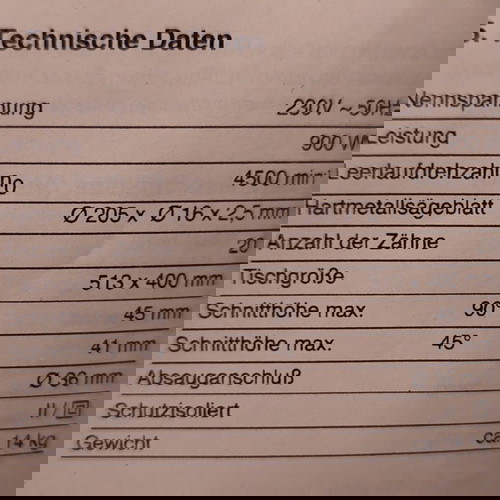 Technische Daten
230V ~ 50Hz
900 W Leistung
4500 min Leerlaufdrehzahl
Ø 205 x Ø 16 x 2,5 mm Hartmetallsägeblatt
20 Anzahl der Zähne
513 x 400 mm Tischgröße
45 mm Schnitthöhe max. 90°
41 mm Schnitthöhe max. 45°
Ø 36 mm Absauganschluß
II / Schutzisoliert
ca. 14 kg Gewicht